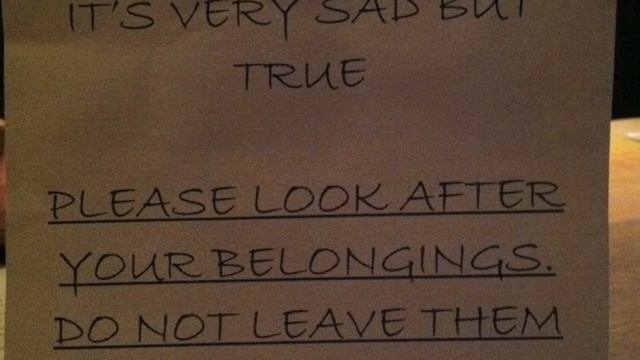 IT'S VERY SAD BUT
TRUE
PLEASE LOOK AFTER
YOUR BELONGINGS.
DO NOT LEAVE THEM